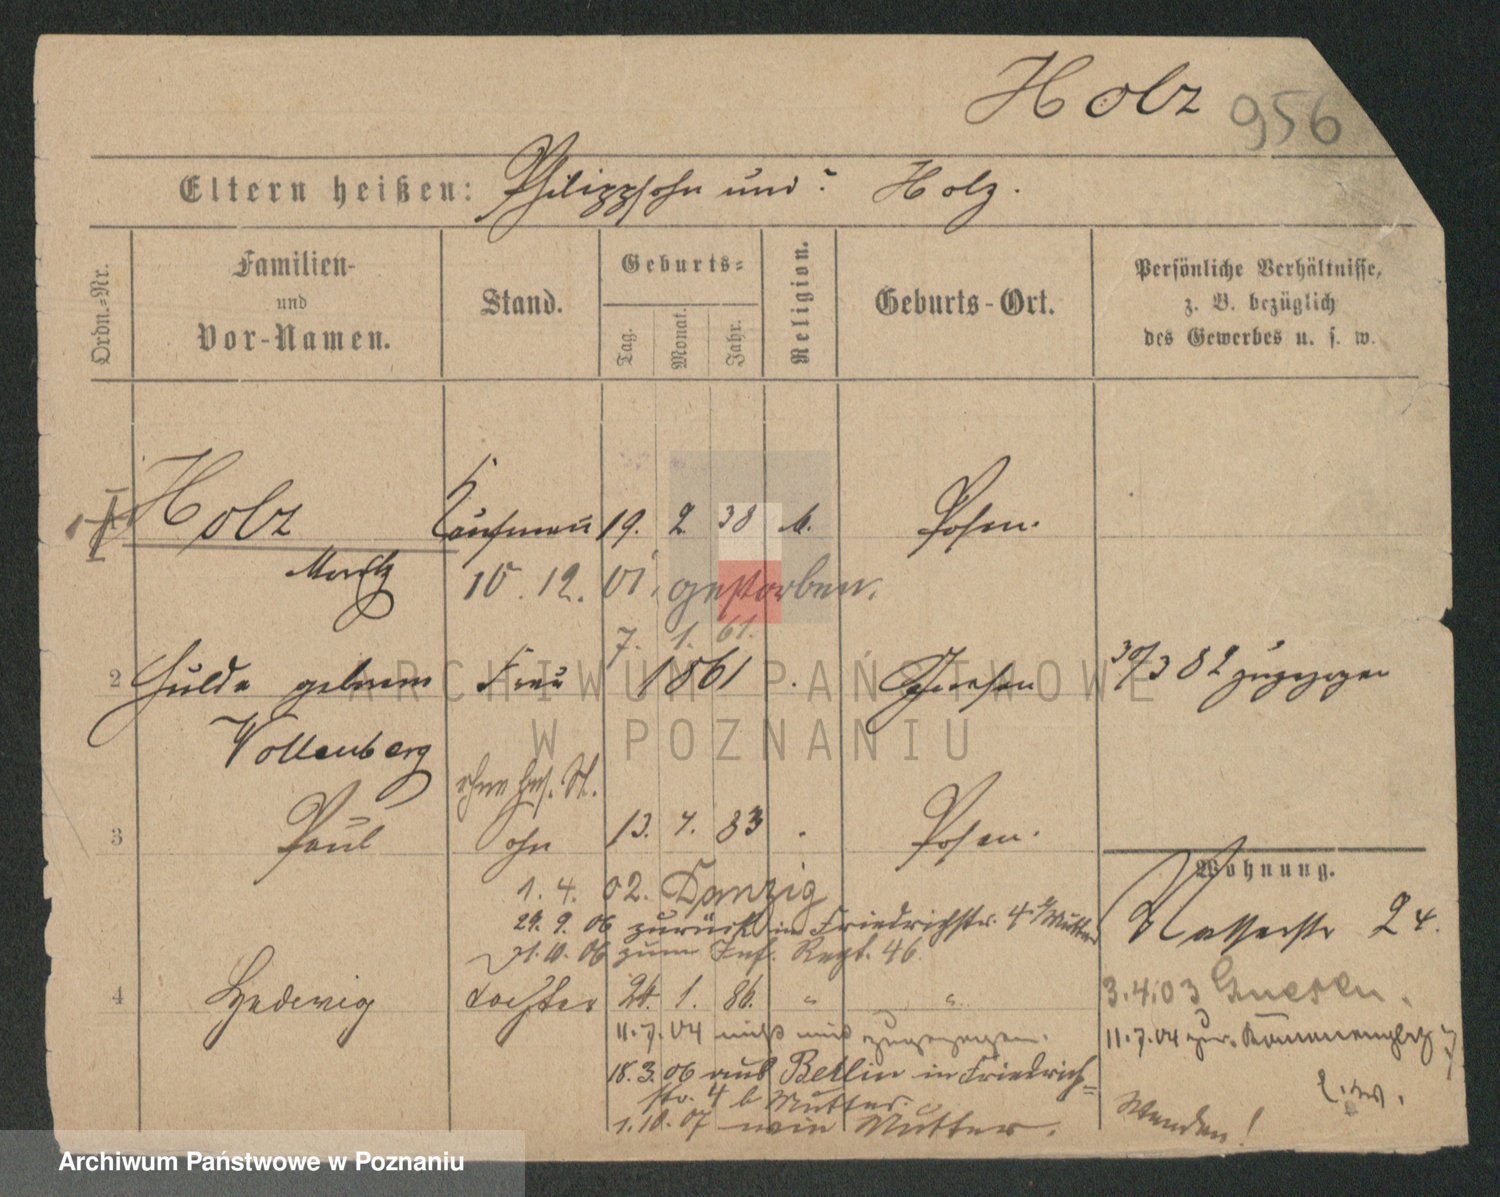 Holz 956
Eltern heißen: Philippsohn und Holz.
Ordn.-Nr.
Familien-
und
Vor-Namen.
Stand.
Geburts-
Tag.
Monat.
Jahr.
Religion.
Geburts-Ort.
Persönliche Verhältnisse,
z. B. bezüglich
des Gewerbes u. s. w.
1 Holz Kaufmann 19. 2. 38 Posen.
Moritz 10. 12. 01. gestorben.
7. 1. 61.
2 Hulda geborene Frau 1861 Gnesen 30/3 82 zugezogen
Wollenberg
3 Paul Sohn 13. 7. 83 Posen.
1. 4. 02. Danzig
24. 9. 06 zurück in Friedrichstr. 4 b/Mutter
21. 10. 06 zum Inf. Regt. 46.
4 Hedwig Tochter 24. 1. 86. " "
11.7.04 mit zugezogen.
18.3.06 aus Berlin in Friedrich=
str. 4 b Mutter.
1.10.07 Mutter.
Wohnung.
24.
3.4.03 Gnesen.
11.7.04
Wenden!
ARCHIWUM PAŃSTWOWE
W POZNANIU
Archiwum Państwowe w Poznaniu